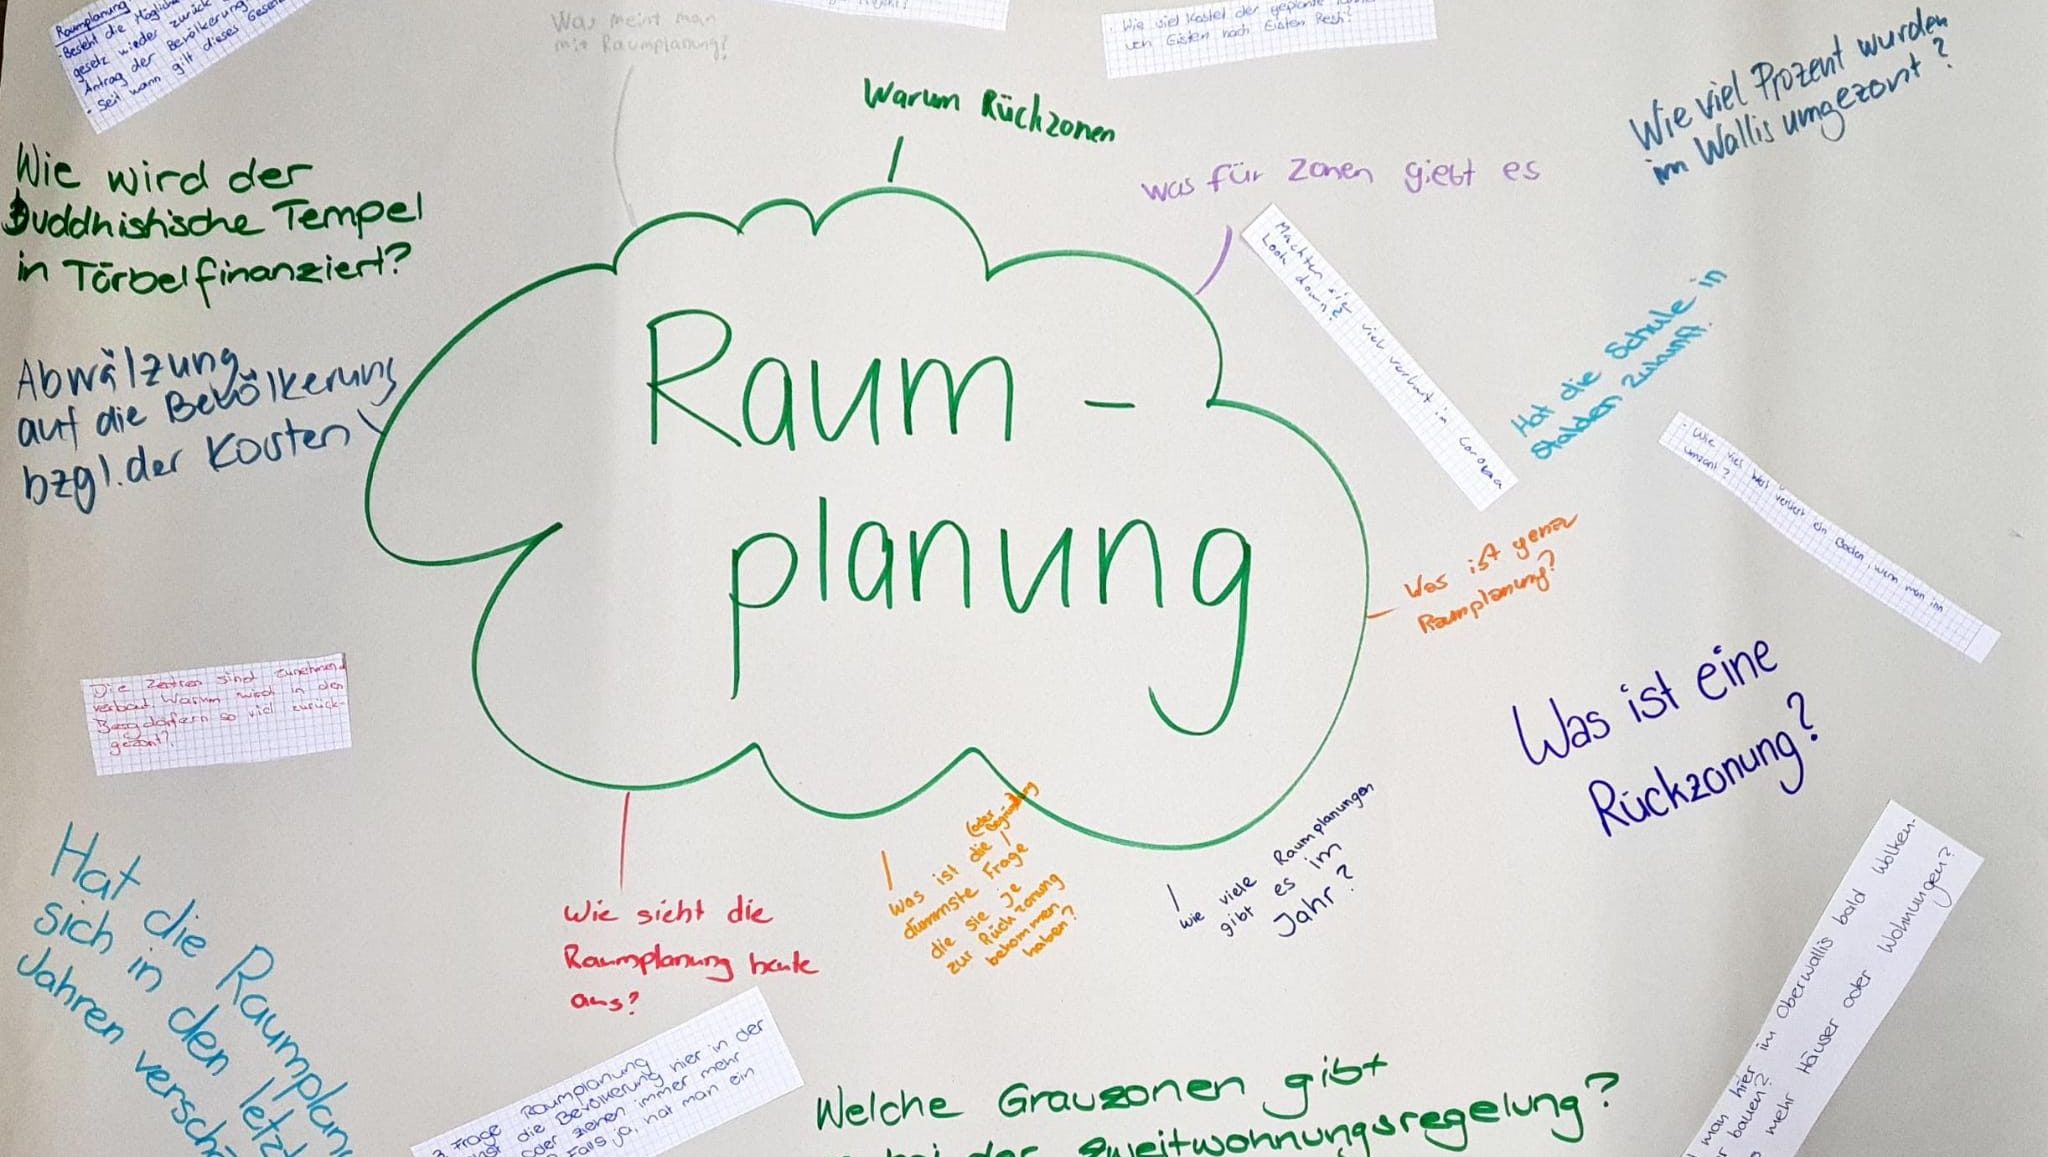 Raumplanung
- Besteht die Möglich
gesetz wieder zurück
Antrag der Bevölkerung
- Seit wann gilt dieses Gesetz
Was meint man
mit Raumplanung?
Wie viel Kostet der geplante
von Eisten nach Eisten Resti?
Warum Rückzonen
was für Zonen giebt es
Wie viel Prozent wurden
im Wallis umgezont?
Wie wird der
Buddhistische Tempel
in Törbel finanziert?
Abwälzung
auf die Bevölkerung
bzgl. der Kosten
Raum-
planung
Machten sie viel verlust im Corona
Look down?
Hat die Schule in
Stalden Zukunft.
- Wie viel Wert verliert ein Boden, wenn man ihn
umzont?
Was ist genau
Raumplanung?
Was ist eine
Rückzonung?
Die Zentren sind zunehmend
verbaut. Warum wird in den
Bergdörfern so viel zurück-
gezont?
Hat die Raumplan
sich in den letzt
Jahren verschä
Wie sieht die
Raumplanung heute
aus?
(oder Begründung)
Was ist die
dümmste Frage
die sie je
zur Rückzonung
bekommen
haben?
Wie viele Raumplanungen
gibt es im
Jahr?
3. Frage Raumplanung
die Bevölkerung hier in der
oder ziehen immer mehr
Falls ja, hat man ein
Welche Grauzonen gibt
bei der Zweitwohnungsregelung?
man hier im Oberwallis bald Wolken-
bauen?
mehr Häuser oder Wohnungen?